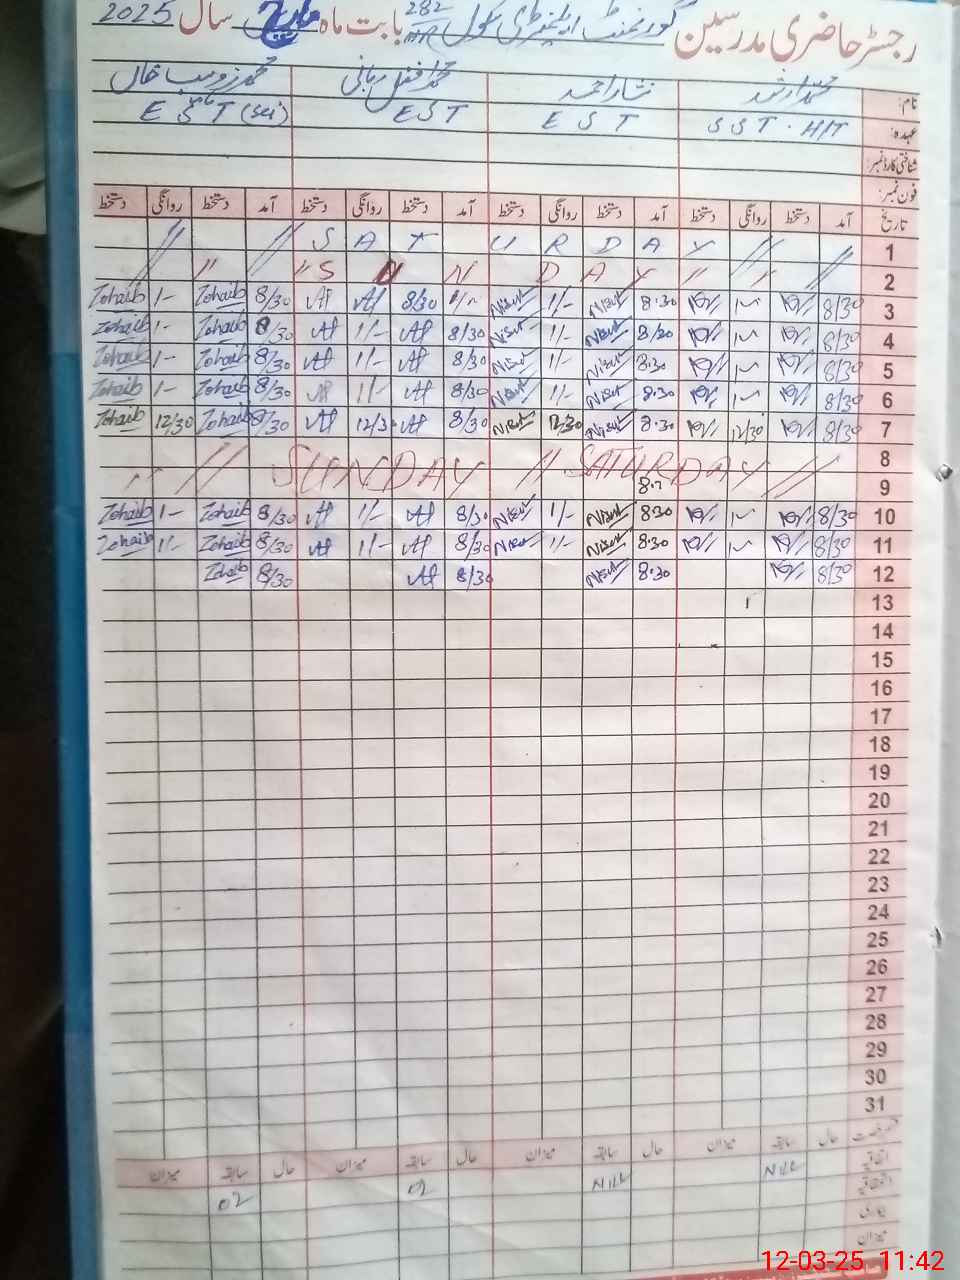 رجسٹر حاضری مدرسین گورنمنٹ ایلیمنٹری سکول 282/HR بابت ماہ مارچ سال 2025
نام: محمد ارشد نثار احمد محمد افضل ربانی محمد زوہیب خاں
عہدہ: SST-H/T EST EST EST (sci)
شناختی کارڈ نمبر:
فون نمبر:
تاریخ آمد دستخط روانگی دستخط آمد دستخط روانگی دستخط آمد دستخط روانگی دستخط آمد دستخط روانگی دستخط
// // S A T U R D A Y // // 1
" " S U N D A Y " " // 2
Zohaib 1/- Zohaib 8/30 Af Af 8/30 1/- Nisar 1/- Nisar 8.30 8/30 3
Zohaib 1/- Zohaib 8/30 Af 1/- Af 8/30 Nisar 1/- Nisar 8/30 8/30 4
Zohaib 1/- Zohaib 8/30 Af 1/- Af 8/30 Nisar 1/- Nisar 8.30 8/30 5
Zohaib 1/- Zohaib 8/30 Af 1/- Af 8/30 Nisar 1/- Nisar 8.30 8/30 6
Zohaib 12/30 Zohaib 8/30 Af 12/30 Af 8/30 Nisar 12/30 Nisar 8.30 12/30 8/30 7
// SUNDAY // SATURDAY // 8
9
Zohaib 1/- Zohaib 8/30 Af 1/- Af 8/30 Nisar 1/- Nisar 830 8/30 10
Zohaib 1/- Zohaib 8/30 Af 1/- Af 8/30 Nisar 1/- Nisar 8.30 8/30 11
Zohaib 8/30 Af 8/30 Nisar 8.30 8/30 12
13
14
15
16
17
18
19
20
21
22
23
24
25
26
27
28
29
30
31
حال سابقہ میزان حال سابقہ میزان حال سابقہ میزان حال سابقہ میزان
اتفاقیہ NILL NILL 02 02
میزان
12-03-25 11:42